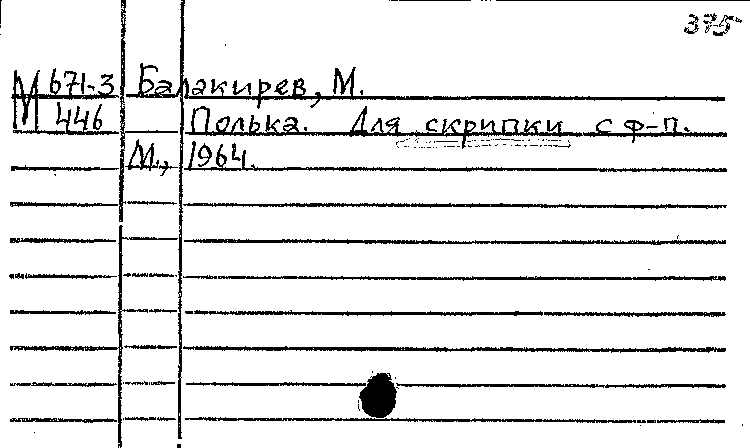 375
М 671-3 Балакирев, М.
446 Полька. Для скрипки с ф-п.
М., 1964.